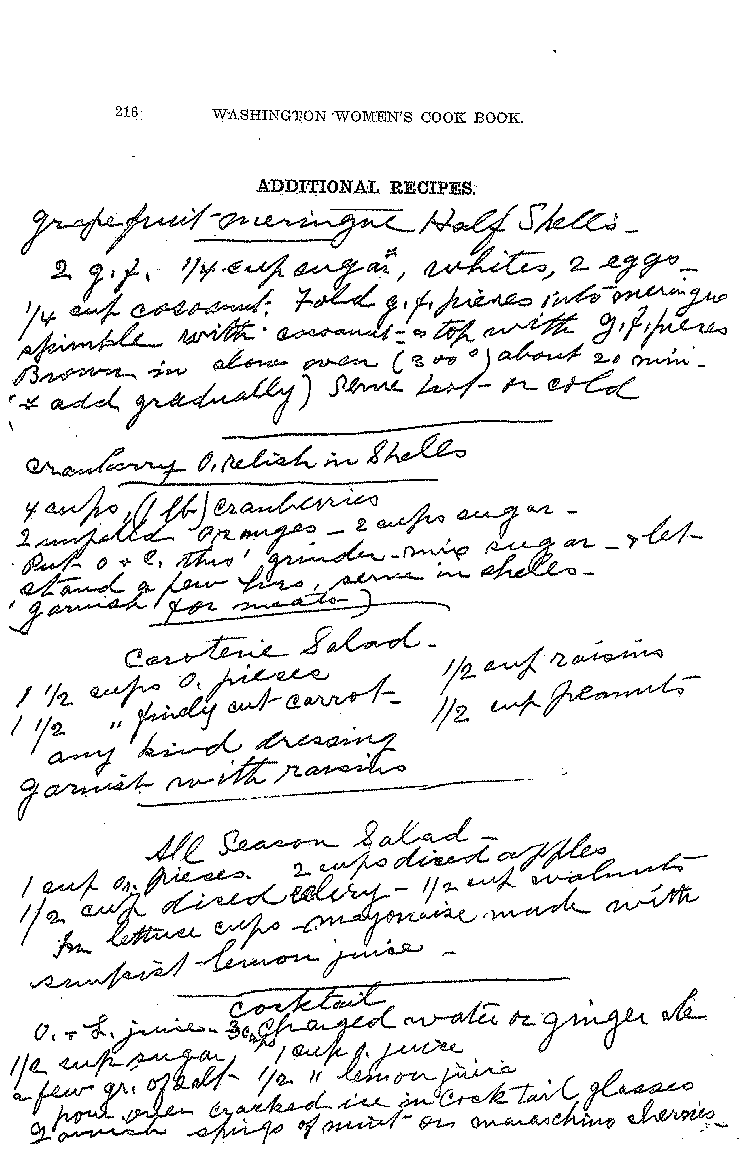 216 WASHINGTON WOMEN'S COOK BOOK.
ADDITIONAL RECIPES.
grapefruit-meringue Half Shells-
2 g.f. 1/4 cup sugar*, whites, 2 eggs-
1/4 cup cocoanut. Fold g.f. pieces into meringue
sprinkle with cocoanut - top with g.f. pieces
Brown in slow oven (300°) about 20 min-
(* add gradually) Serve hot - or cold
Cranberry O. relish in Shells
4 cups, (1 lb) cranberries
2 unpeeled oranges - 2 cups sugar -
Put O + C. thro' grinder - mix sugar - + let
stand a few hrs, serve in shells -
(garnish for meats)
Carotene Salad -
1 1/2 cups O. pieses 1/2 cup raisins
1 1/2 " finely cut carrot - 1/2 cup peanuts
any kind dressing
garnish with raisins
All Season Salad -
1 cup or. pieses. 2 cups diced apples
1/2 cup diced celery - 1/2 cup walnuts
In lettuce cups - mayonaise made with
sunkist lemon juice -
Cocktail
O. + L. juice - 3 cups charged water or ginger ale
1/2 cup sugar, 1 cup o. juice
a few gr. of salt - 1/2 " lemon juice
pour over cracked ice in Cocktail glasses
garnish sprigs of mint or maraschino cherries